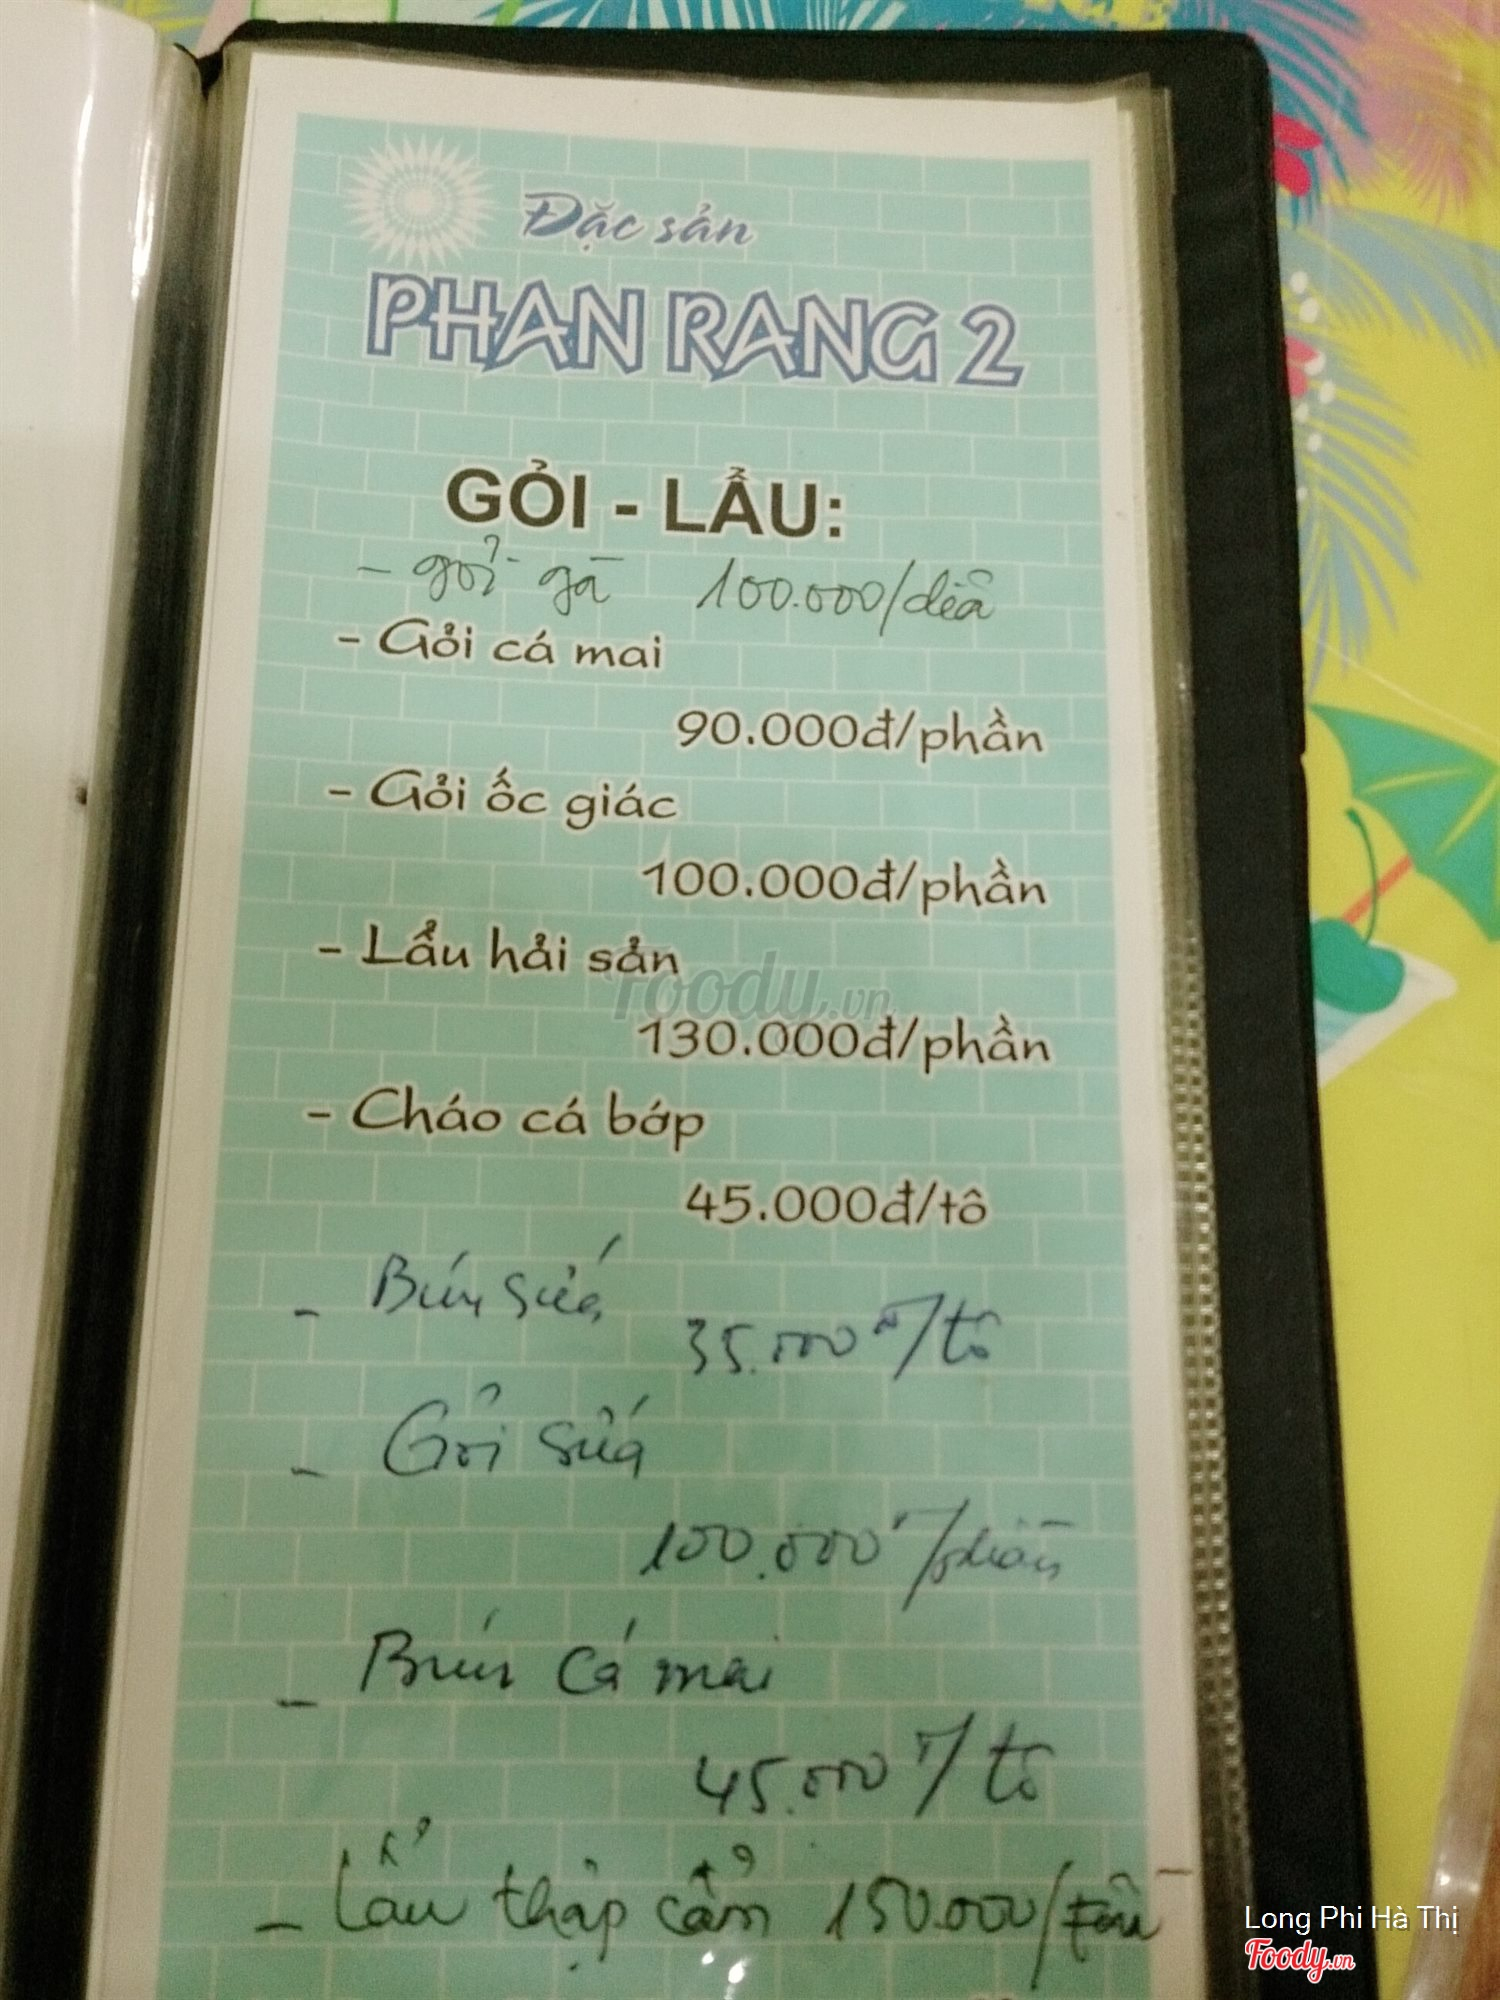 Đặc sản
PHAN RANG 2
GỎI - LẨU:
- gỏi gà 100.000/dĩa
- Gỏi cá mai
90.000đ/phần
- Gỏi ốc giác
100.000đ/phần
- Lẩu hải sản
Foody.vn
130.000đ/phần
- Cháo cá bớp
45.000đ/tô
- Bún sứa
35.000đ/tô
- Gỏi sứa
100.000đ/phần
- Bún cá mai
45.000đ/tô
- Lẩu thập cẩm 150.000/
Long Phi Hà Thị
Foody.vn